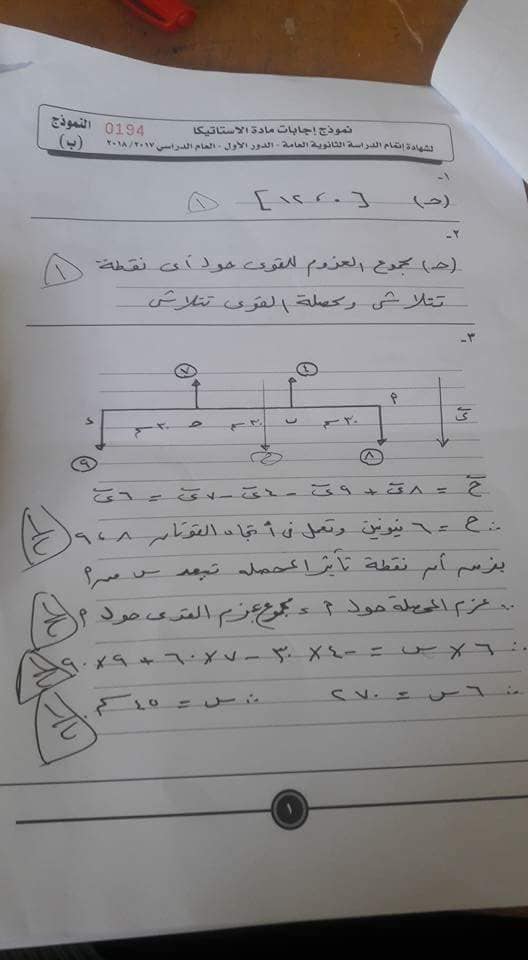 النموذج
(ب)
0194
نموذج إجابات مادة الاستاتيكا
لشهادة إتمام الدراسة الثانوية العامة - الدور الأول - العام الدراسي ٢٠١٧/ ٢٠١٨
١-
(حـ) [١٢،٠] ١
٢-
(حـ) مجموع العزوم للقوى حول أى نقطة ١
تتلاشى ومحصلة القوى تتلاشى
٣-
٧ ٤
م ي
٣٠ سم ب ٣٠ سم حـ ٣٠ سم ء
٨ ح ٩
ح = ٨ي + ٩ي - ٤ي - ٧ي = ٦ي
∴ ح = ٦ نيوتن وتعمل فى اتجاه القوتان ٨، ٩ ١/٢
بفرض أن نقطة تأثير المحصلة تبعد س من م
∴ عزم المحصلة حول م = مجموع عزم القوى حول م ١/٢
∴ ٦ × س = -٤ × ٣٠ - ٧ × ٦٠ + ٩ × ٩٠ ١/٢
∴ ٦س = ٢٧٠ ∴ س = ٤٥ سم ١/٢
١